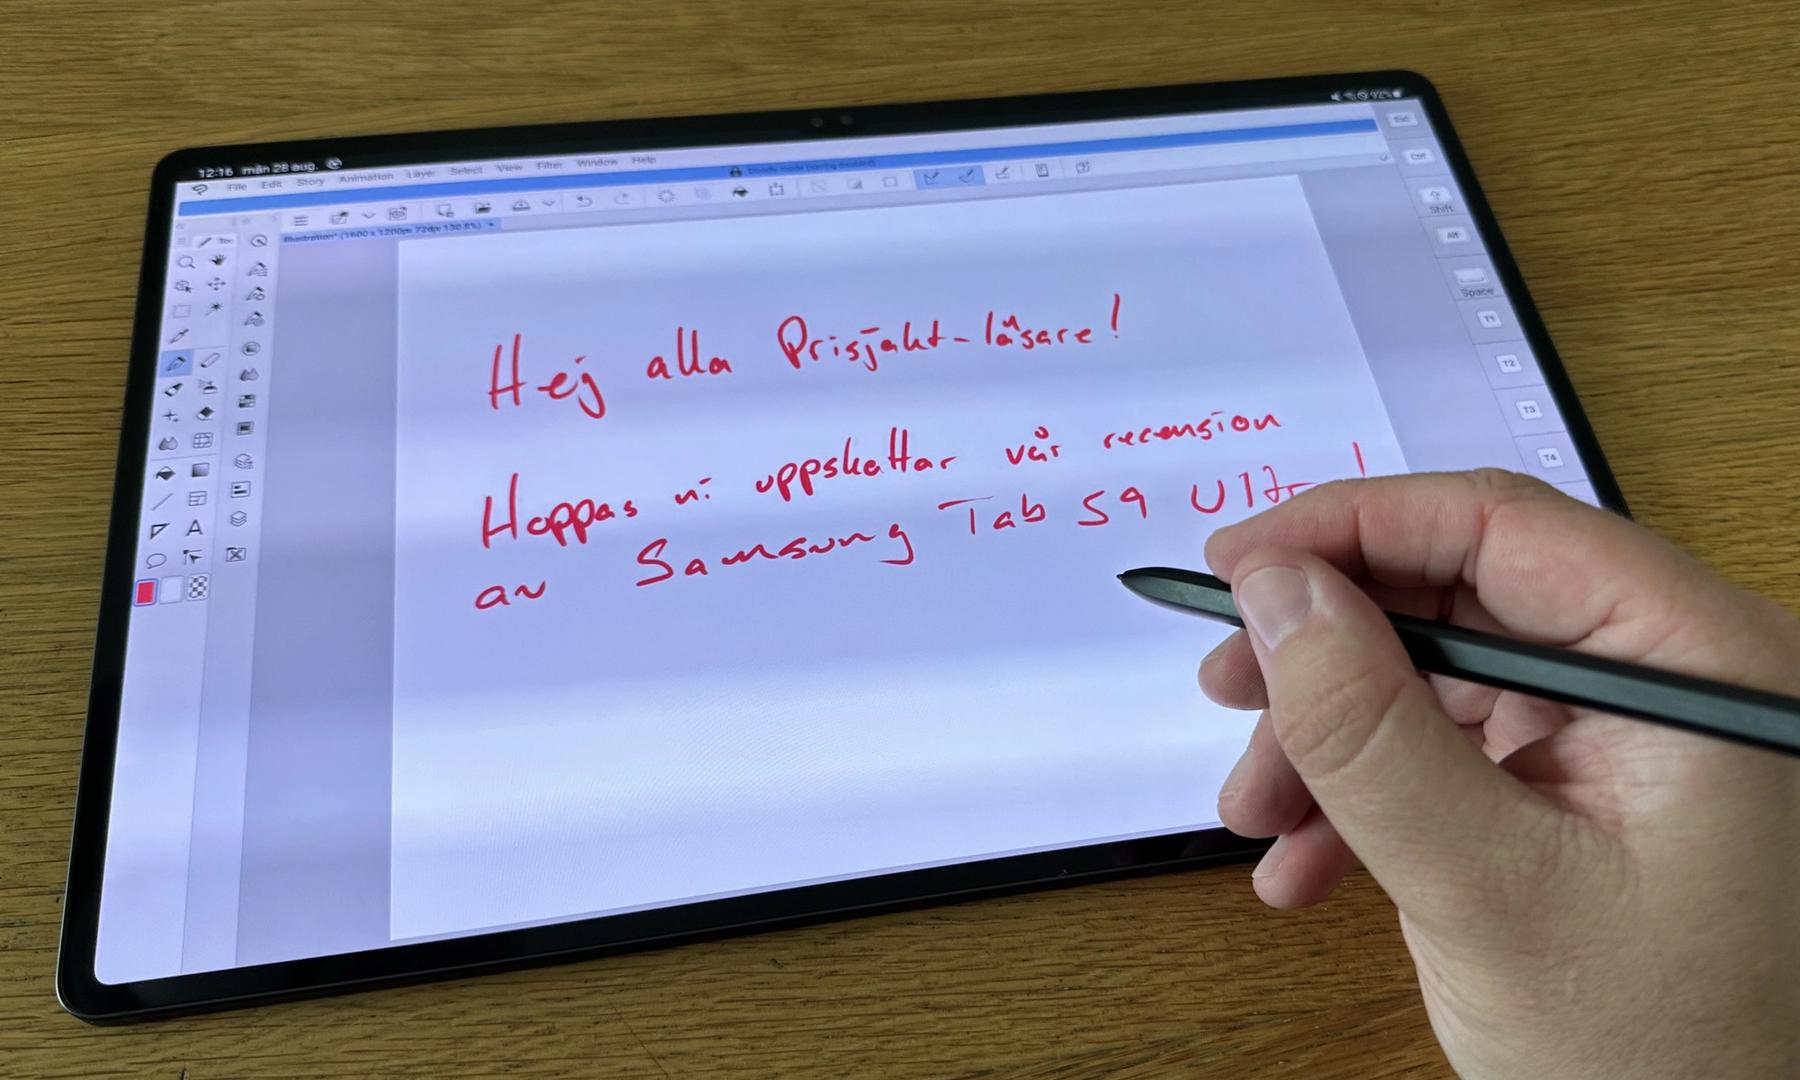 12:16 mån 28 aug.
92%
File Edit Story Animation Layer Select View Filter Window Help
Doodle mode (saving disabled)
Illustration* (1600 x 1200px 72dpi 130.8%)
Esc
Ctrl
Shift
Alt
Space
T1
T2
T3
T4
A
Hej alla Prisjakt-läsare!
Hoppas ni uppskattar vår recension
av Samsung Tab S9 Ultra!